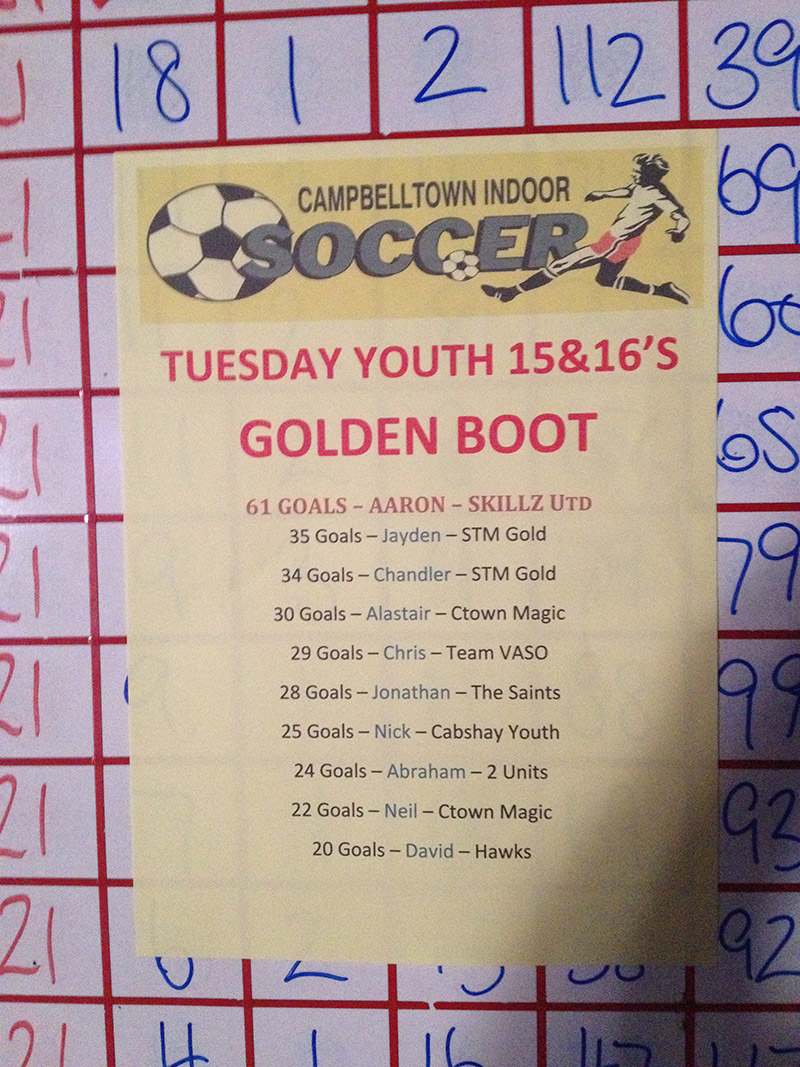 18 1 2 112 39
CAMPBELLTOWN INDOOR
SOCCER
TUESDAY YOUTH 15&16'S
GOLDEN BOOT
61 GOALS – AARON – SKILLZ UTD
35 Goals – Jayden – STM Gold
34 Goals – Chandler – STM Gold
30 Goals – Alastair – Ctown Magic
29 Goals – Chris – Team VASO
28 Goals – Jonathan – The Saints
25 Goals – Nick – Cabshay Youth
24 Goals – Abraham – 2 Units
22 Goals – Neil – Ctown Magic
20 Goals – David – Hawks
69
21
21 65
21 79
21 99
21 93
21 92
21